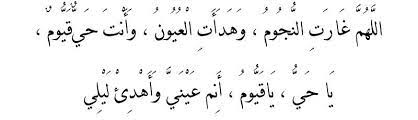 اللَّهُمَّ غَارَتِ النُّجُومُ ، وَهَدَأَتِ الْعُيُونُ ، وَأَنْتَ حَيٌّ قَيُّومٌ ،
يَا حَيُّ ، يَاقَيُّومُ ، أَنِم عَيْنَيَّ وَأَهْدِئْ لَيْلِي